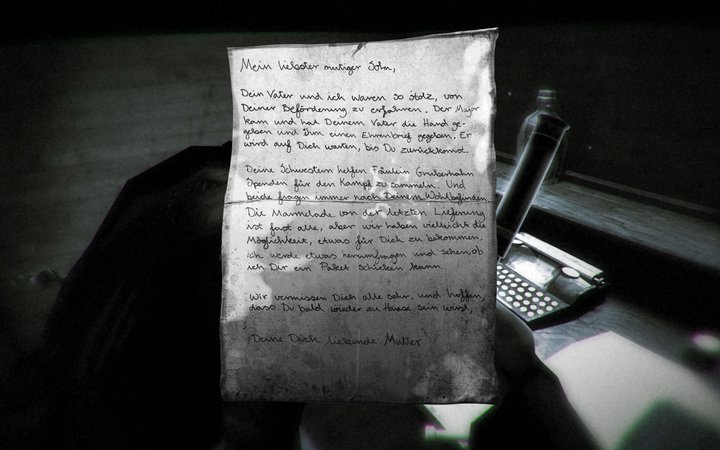 Mein liebster mutiger Sohn,
Dein Vater und ich waren so stolz, von
Deiner Beförderung zu erfahren. Der Major
kam und hat Deinem Vater die Hand ge-
geben und Ihm einen Ehrenbrief gegeben. Er
wird auf Dich warten, bis Du zurückkommst.
Deine Schwestern helfen Fräulein Gruberhahn
Spenden für den Kampf zu sammeln. Und
beide fragen immer nach Deinem Wohlbefinden
Die Marmelade von der letzten Lieferung
ist fast alle, aber wir haben vielleicht die
Möglichkeit, etwas für Dich zu bekommen,
ich werde etwas herumfragen und sehen, ob
ich Dir ein Paket schicken kann
Wir vermissen Dich alle sehr, und hoffen,
dass Du bald wieder zu Hause sein wirst,
Deine Dich liebende Mutter